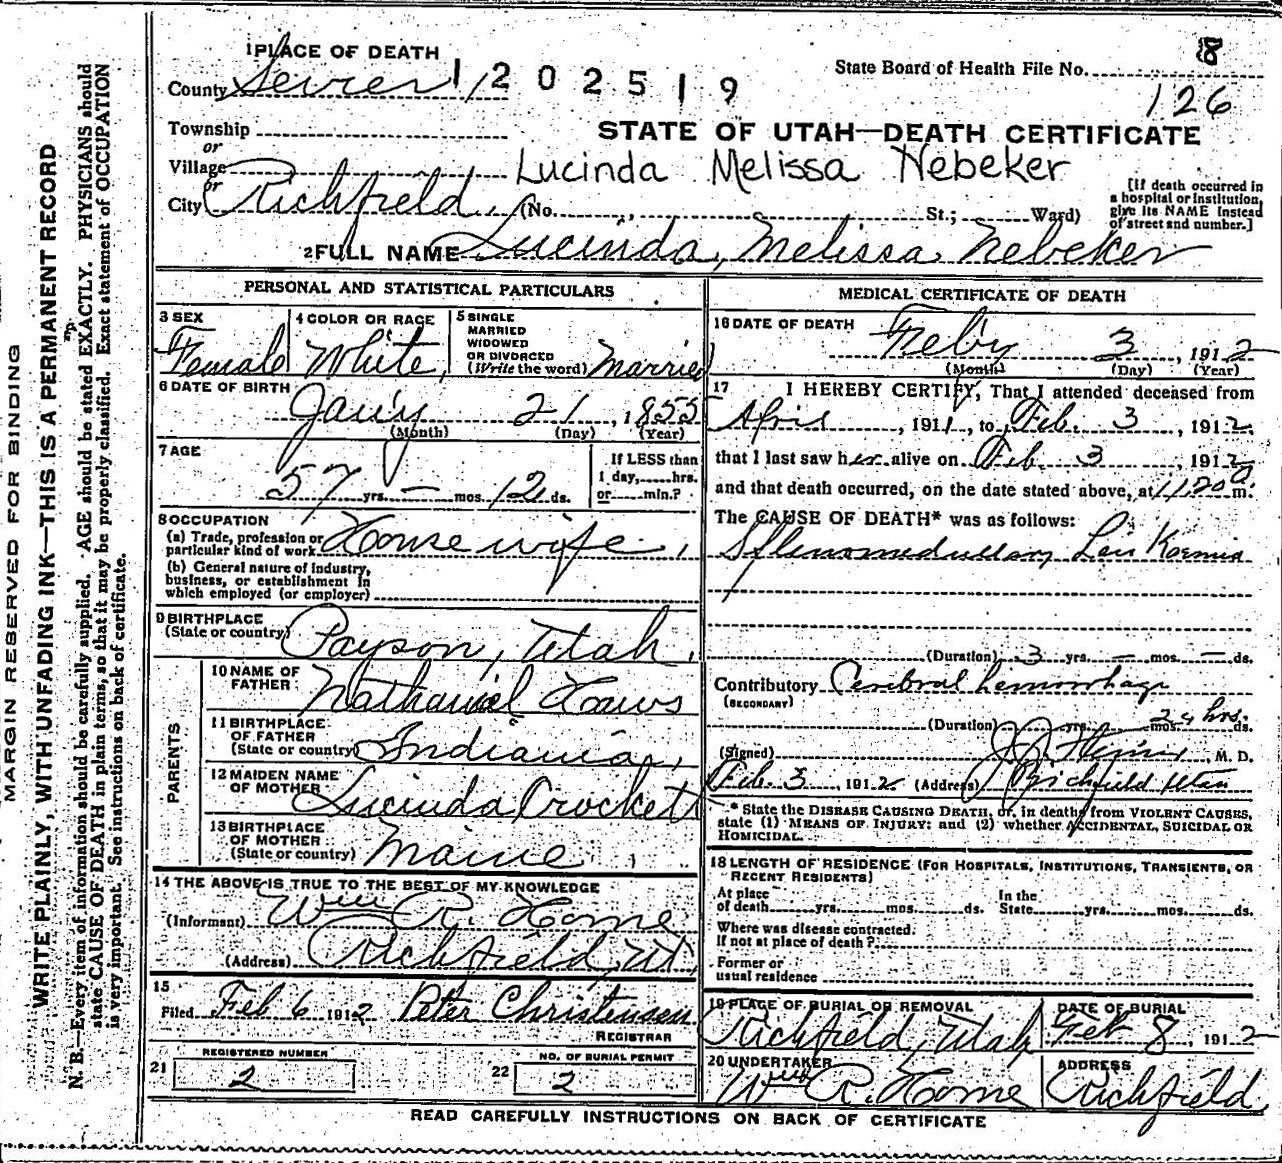 MARGIN RESERVED FOR BINDING
WRITE PLAINLY, WITH UNFADING INK—THIS IS A PERMANENT RECORD
N. B.—Every item of information should be carefully supplied. AGE should be stated EXACTLY. PHYSICIANS should
state CAUSE OF DEATH in plain terms, so that it may be properly classified. Exact statement of OCCUPATION
is very important. See instructions on back of certificate.
1 PLACE OF DEATH
County Sevier
1202519
State Board of Health File No.
8
126
Township
or
Village
or
City Richfield
STATE OF UTAH—DEATH CERTIFICATE
Lucinda Melissa Nebeker
(No. St.; Ward)
[If death occurred in
a hospital or institution,
give its NAME instead
of street and number.]
2 FULL NAME Lucinda, Melissa Nebeker
PERSONAL AND STATISTICAL PARTICULARS
3 SEX
Female
4 COLOR OR RACE
White
5 SINGLE
MARRIED
WIDOWED
OR DIVORCED
(Write the word) Married
6 DATE OF BIRTH
Jan'y 21, 1855
(Month) (Day) (Year)
7 AGE
57 yrs. — mos. 12 ds.
If LESS than
1 day, hrs.
or min.?
8 OCCUPATION
(a) Trade, profession or
particular kind of work Housewife
(b) General nature of industry,
business, or establishment in
which employed (or employer)
9 BIRTHPLACE
(State or country) Payson, Utah
PARENTS
10 NAME OF
FATHER Nathaniel Haws
11 BIRTHPLACE
OF FATHER
(State or country) Indiania
12 MAIDEN NAME
OF MOTHER Lucinda Crockett
13 BIRTHPLACE
OF MOTHER
(State or country) Maine
14 THE ABOVE IS TRUE TO THE BEST OF MY KNOWLEDGE
(Informant) Wm R. Horne
(Address) Richfield, Ut
15
Filed Feb 6 1912 Peter Christensen
REGISTRAR
21 REGISTERED NUMBER
2
22 NO. OF BURIAL PERMIT
2
MEDICAL CERTIFICATE OF DEATH
16 DATE OF DEATH
Feby 3, 1912
(Month) (Day) (Year)
17 I HEREBY CERTIFY, That I attended deceased from
April, 1911, to Feb. 3, 1912
that I last saw her alive on Feb. 3, 1912
and that death occurred, on the date stated above, at m.
The CAUSE OF DEATH* was as follows:
Splenomedullary
(Duration) 3 yrs. — mos. — ds.
Contributory Cerebral hemorrhage
(SECONDARY)
(Duration) yrs. mos. 24 hrs. ds.
(Signed) M. D.
Feb. 3, 1912 (Address) Richfield Utah
* State the DISEASE CAUSING DEATH, or, in deaths from VIOLENT CAUSES,
state (1) MEANS OF INJURY; and (2) whether ACCIDENTAL, SUICIDAL OR
HOMICIDAL.
18 LENGTH OF RESIDENCE (FOR HOSPITALS, INSTITUTIONS, TRANSIENTS, OR
RECENT RESIDENTS)
At place
of death yrs. mos. ds.
In the
State yrs. mos. ds.
Where was disease contracted.
if not at place of death?
Former or
usual residence
19 PLACE OF BURIAL OR REMOVAL
Richfield, Utah
DATE OF BURIAL
Feb 8, 1912
20 UNDERTAKER
Wm R. Horne
ADDRESS
Richfield
READ CAREFULLY INSTRUCTIONS ON BACK OF CERTIFICATE